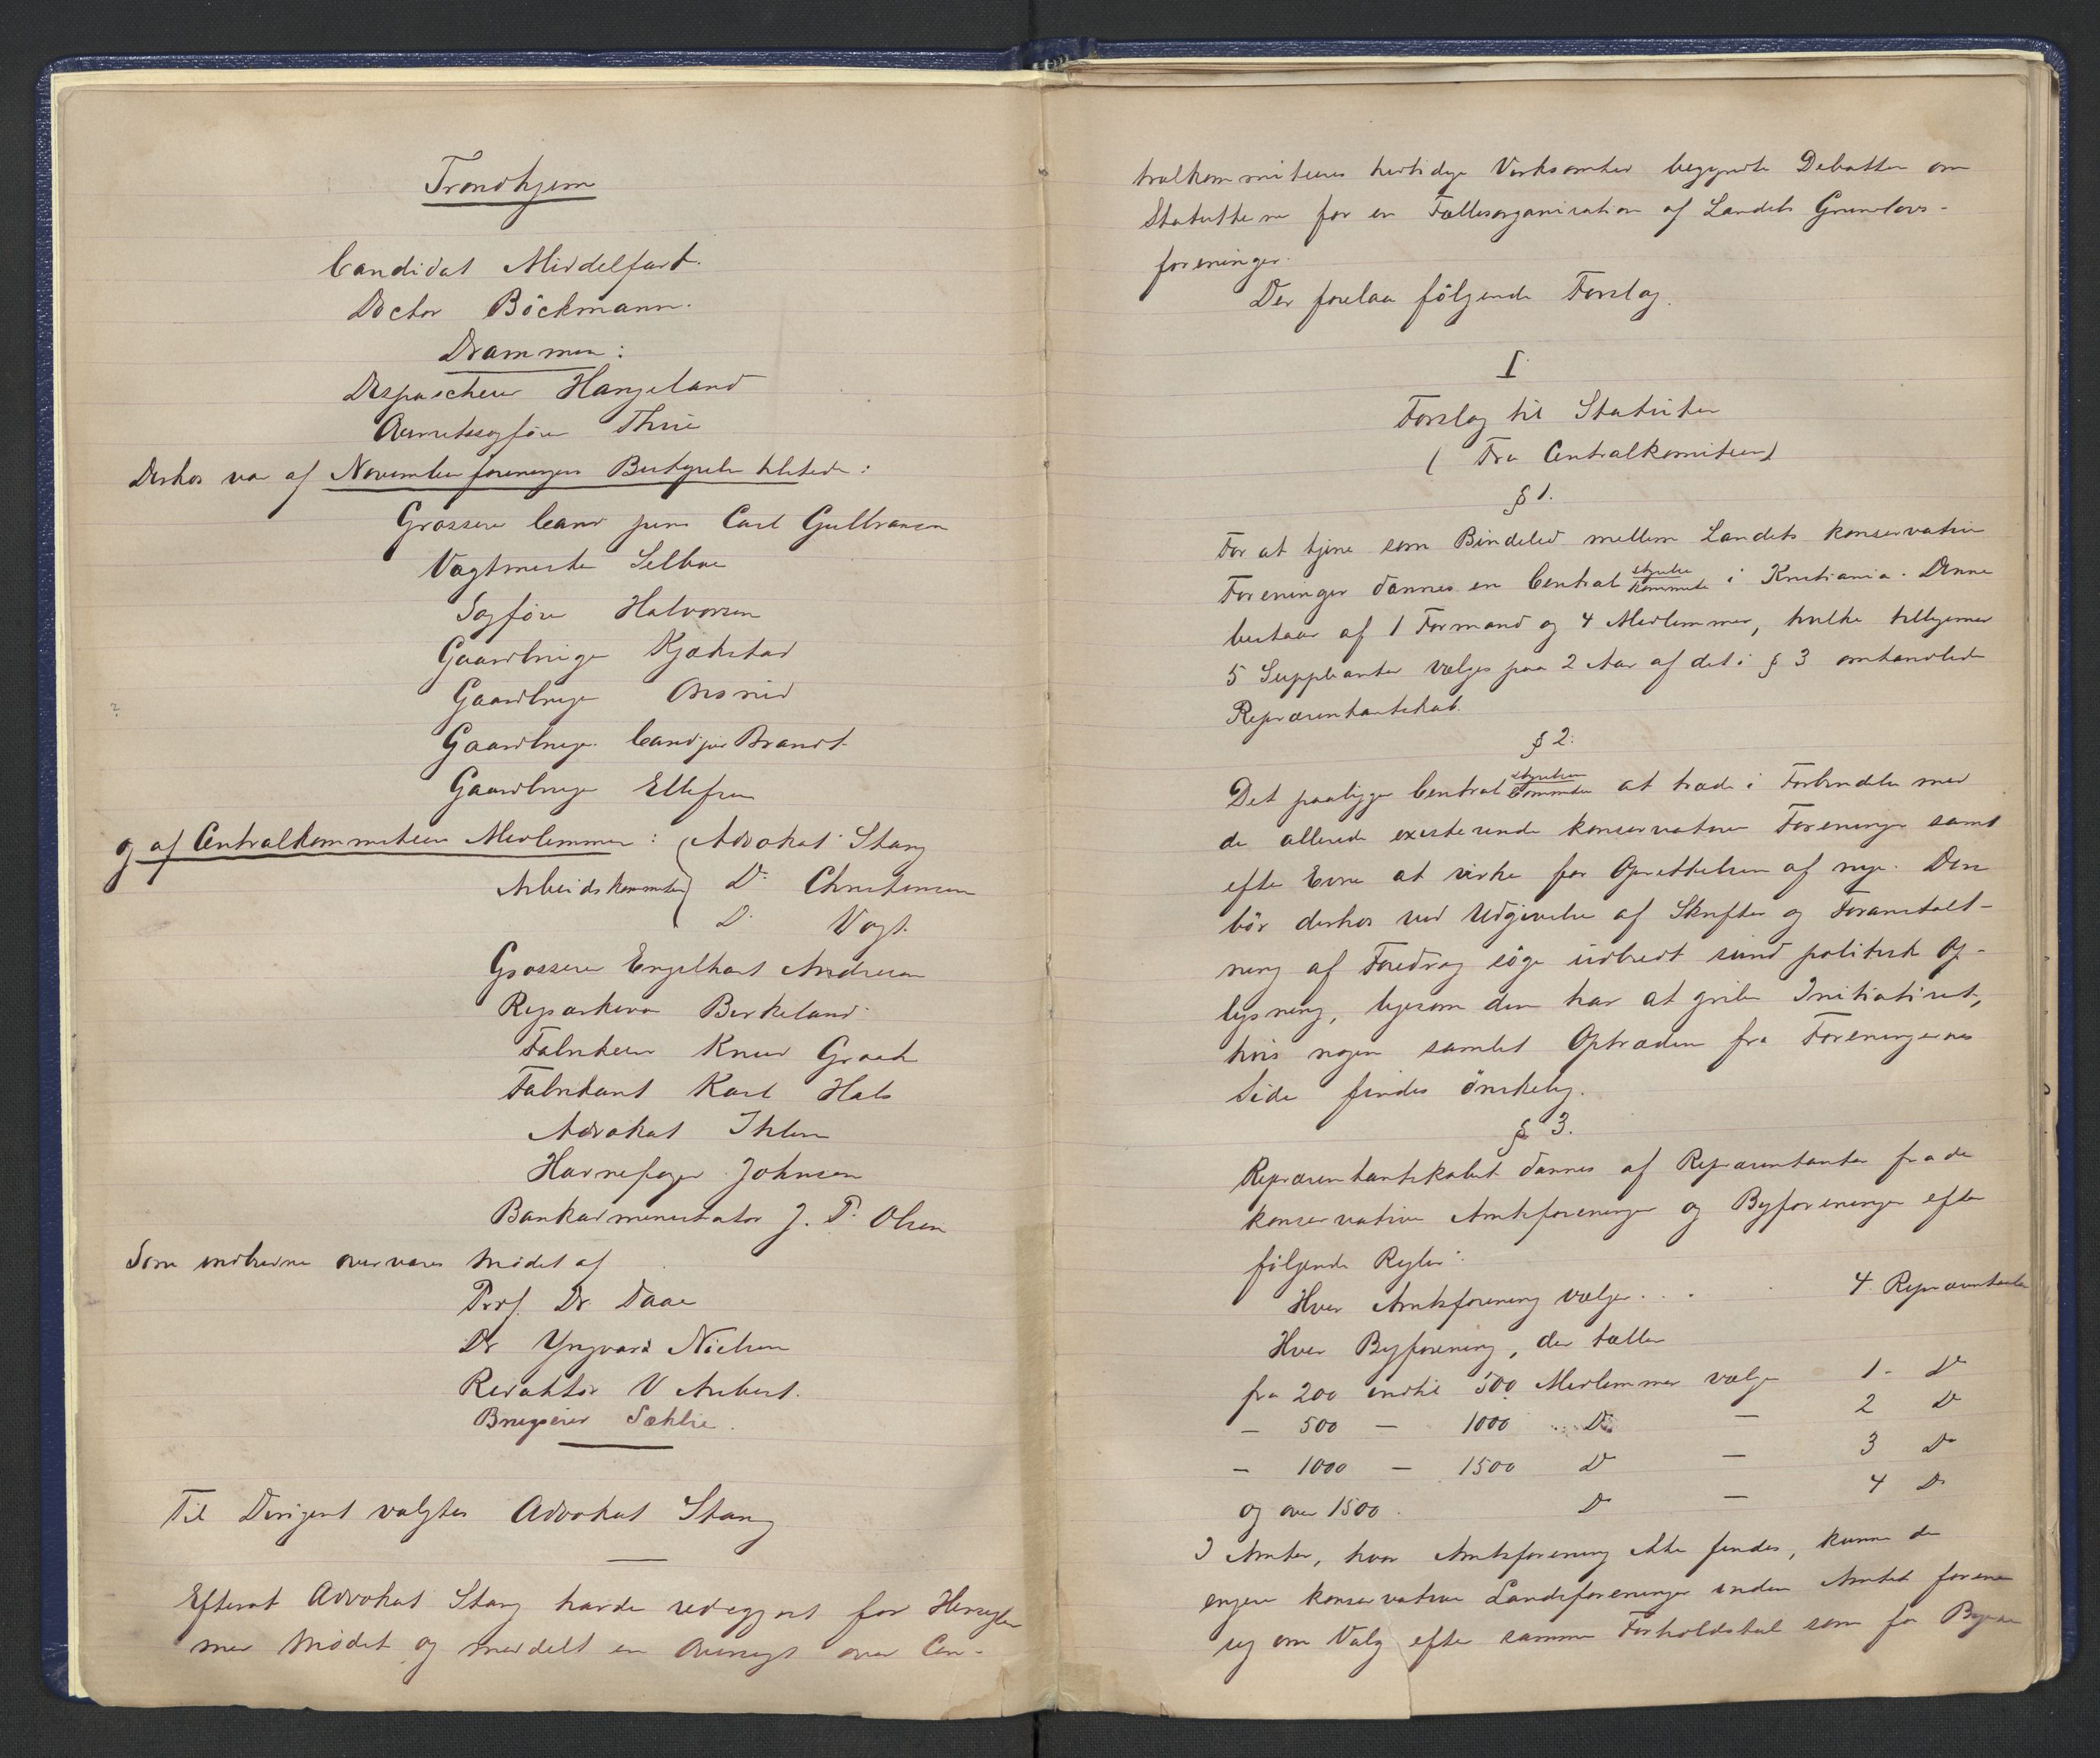 Trondhjem
Candidat Middelfart.
Doctor Böckmann.
Drammen:
Dispascheur Hangeland
Overretssagfører Thiis
Desho var af Novemberforeningens Bestyrelse tilstede:
Grosserer Cand juris Carl Gulbransen
Vagtmester Selboe
Sagfører Halvorsen
Gaardbruger Kjækstad
Gaardbruger
Gaardbruger Cand jur Brandt
Gaardbruger Ellefsen
og af Centralkommiteens Medlemmer: Advokat Stang
Arbeidskommiteen Do Christensen
Do Vogt.
Grosserer Engelhart Andresen
Repslager Berkeland
Fabrikeier Knud Graah
Fabrikant Karl Hals
Advokat Ihlen
Havnefoged Johnsen
Bankadministrator J. P. Olsen
Som indbudne overvares Mödet af
Prof. Dr. Daae
Dr Yngvard Nielsen
Redaktör V Aubert.
Brugseier Sæhlie.
Til Dirigent valgtes Advokat Stang
Efterat Advokat Stang havde redegjort for Hensigten
med Mödet og meddelt en Oversigt over Cen-
tralkommiteens hidtidige Virksomhed begyndte Debatten om
Statutterne for en Fællesorganisation af Landets Grundlovs-
foreninger.
Der forelaa fölgende Forslag.
I
Forslag til Statuter
(Fra Centralkomiteen)
§ 1.
For at tjene som Bindeled mellem Landets konservative
Foreninger dannes en Central styrelse kommite i Kristiania. Denne
bestaar af 1 Formand og 4 Medlemmer, hvilke tilligemed
5 Suppleanter vælges paa 2 Aar af det i § 3 omhandlede
Repræsentantskab.
§ 2.
Det paaligger Central styrelsen Commiteen at træde i Forbindelse med
de allerede existerende konservative Foreninger samt
efter Evne at virke for Oprettelsen af nye. Den
bör derhos ved Udgivelse af Skrifter og Foranstalt-
ning af Foredrag söge udbredt sund politisk Op-
lysning, ligesom den har at gribe Initiativet,
hvis nogen samlet Optræden fra Foreningernes
Side findes önskelig.
§ 3.
Repræsentantskabet dannes af Repræsentanter fra de
konservative Amtsforeninger og Byforeninger efter
fölgende Regler:
Hver Amtsforening vælger . . . 4 Repræsentanter
Hver Byforening, der tæller
fra 200 indtil 500 Medlemmer vælger 1 - Do
- 500 - 1000 Do - 2 Do
- 1000 - 1500 Do - 3 Do
og over 1500 . Do - 4 Do
I Amter, hvor Amtsforening ikke findes, kunne de
engere konservative Landsforeninger inden Amtet forene
sig om Valg efter samme Forholdstal som for Byerne